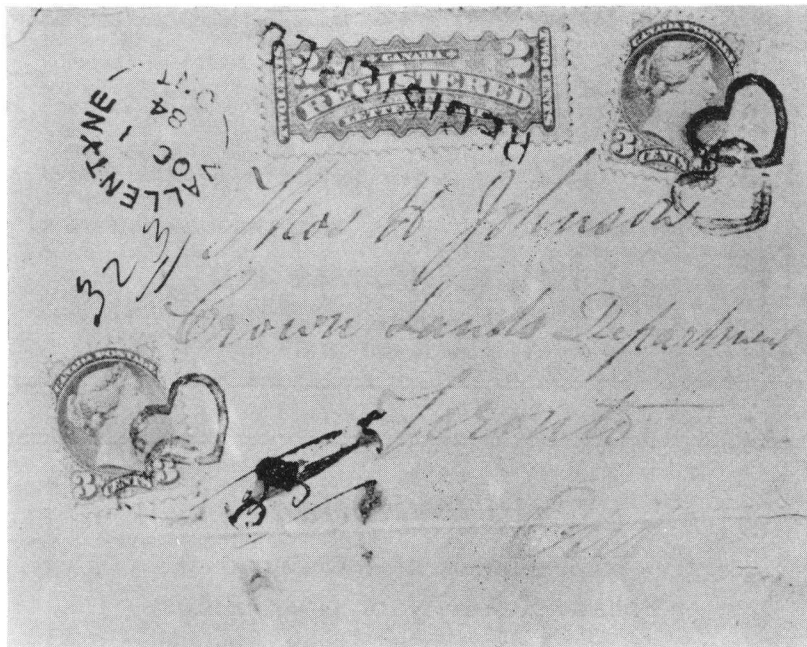 VALLENTYNE
OC 1
84
ONT
CANADA
2 2
REGISTERED
LETTER
TWO CENTS
REGISTERED
CANADA POSTAGE
3 CENTS
Thos W Johnson
Crown Lands Department
Toronto
Ont
CANADA POSTAGE
3 CENTS 3